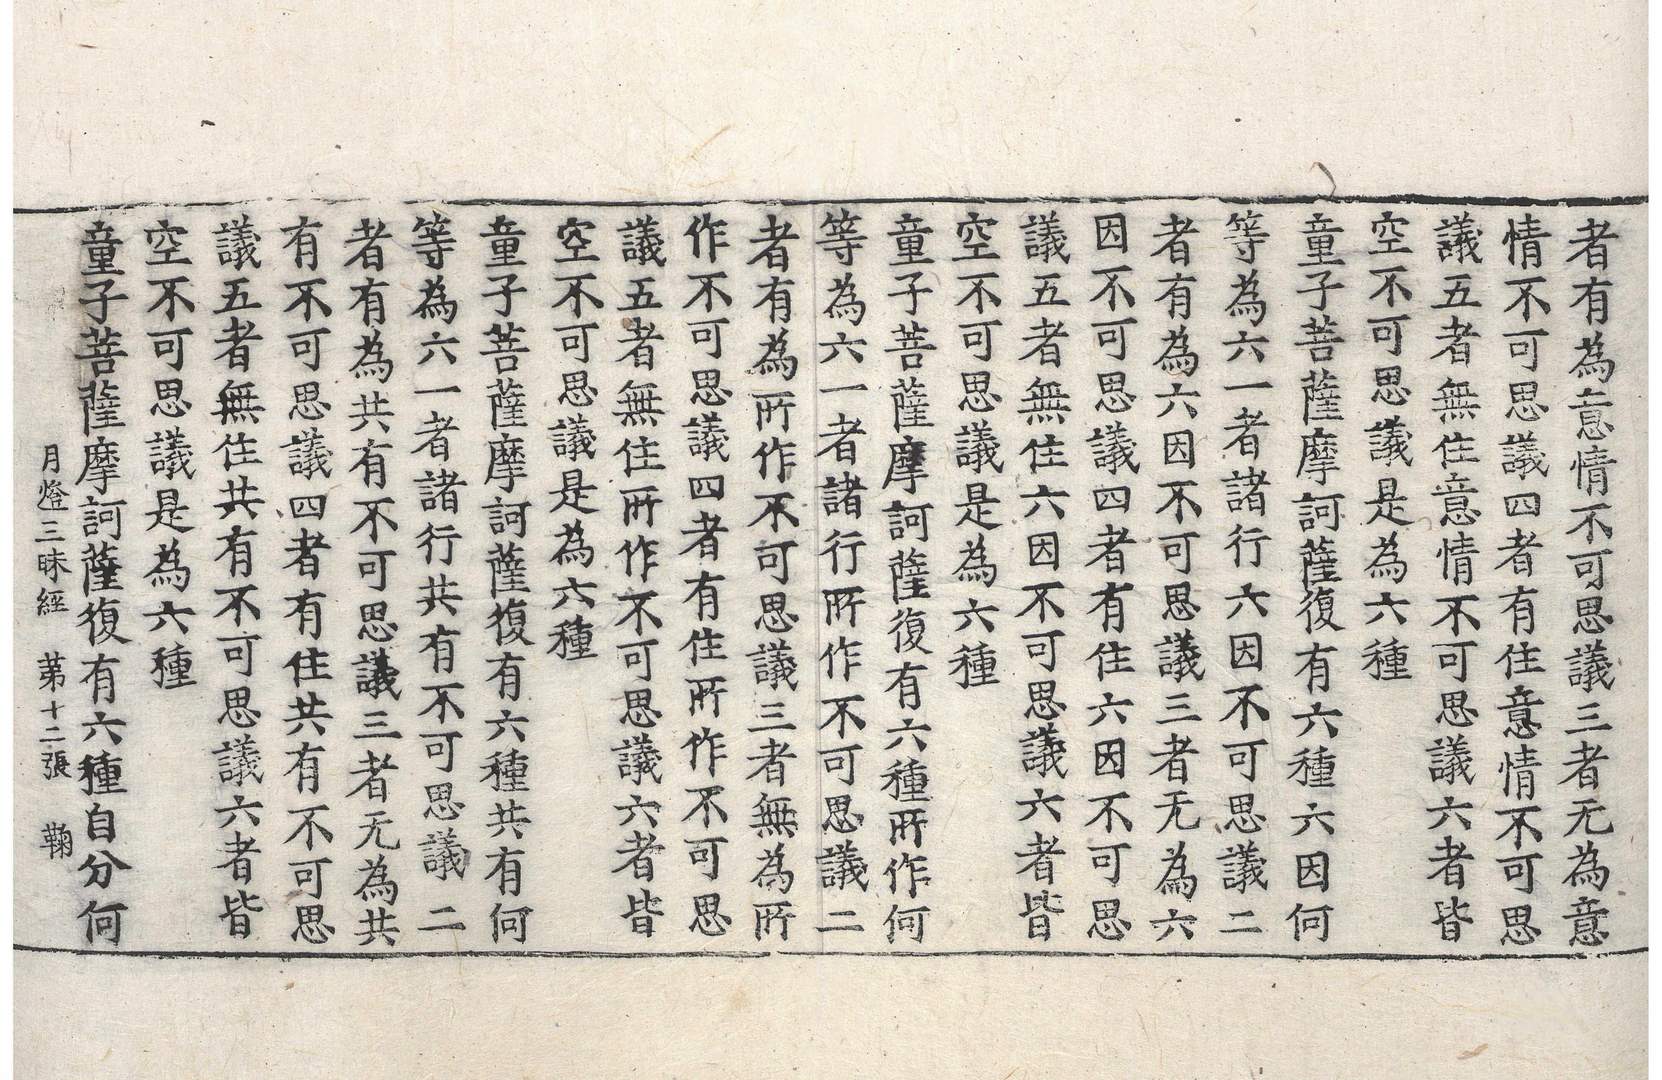 者有為意情不可思議三者无為意
情不可思議四者有住意情不可思
議五者無住意情不可思議六者皆
空不可思議是為六種
童子菩薩摩訶薩復有六種六因何
等為六一者諸行六因不可思議二
者有為六因不可思議三者无為六
因不可思議四者有住六因不可思
議五者無住六因不可思議六者皆
空不可思議是為六種
童子菩薩摩訶薩復有六種所作何
等為六一者諸行所作不可思議二
者有為所作不可思議三者無為所
作不可思議四者有住所作不可思
議五者無住所作不可思議六者皆
空不可思議是為六種
童子菩薩摩訶薩復有六種共有何
等為六一者諸行共有不可思議二
者有為共有不可思議三者无為共
有不可思議四者有住共有不可思
議五者無住共有不可思議六者皆
空不可思議是為六種
童子菩薩摩訶薩復有六種自分何
月燈三昧經　第十二張　鞠